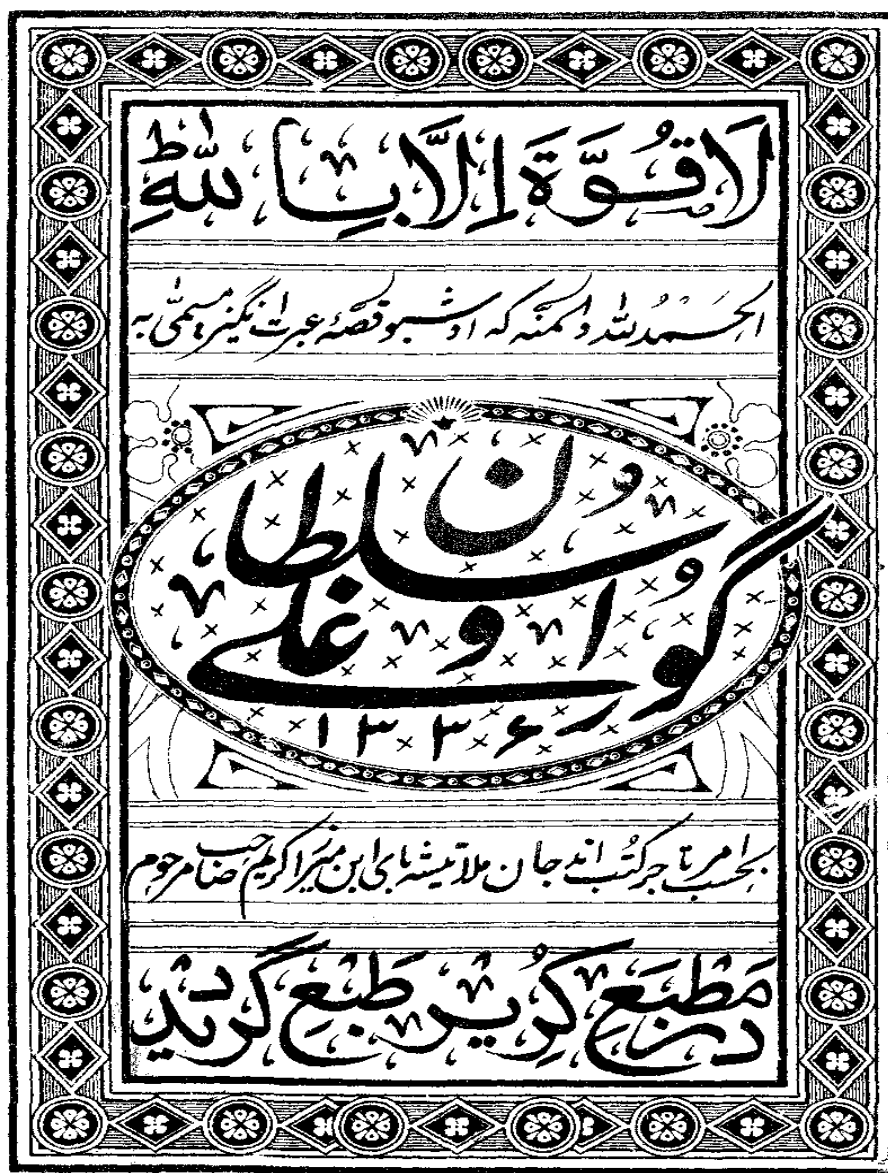 لَا قُوَّةَ اِلَّا بِاللّٰهِ
الحمدُ للّٰه والمنّه که اوشبو قصّهٔ عبرت انگیز مسمّی به
گوراوغلی سلطان
۱۳۳۶
بحسب امر تاجر کتب اندجان ملا تیشه بای ابن میرزا کریم صاحب مرحوم
در مطبعِ طبع گردید